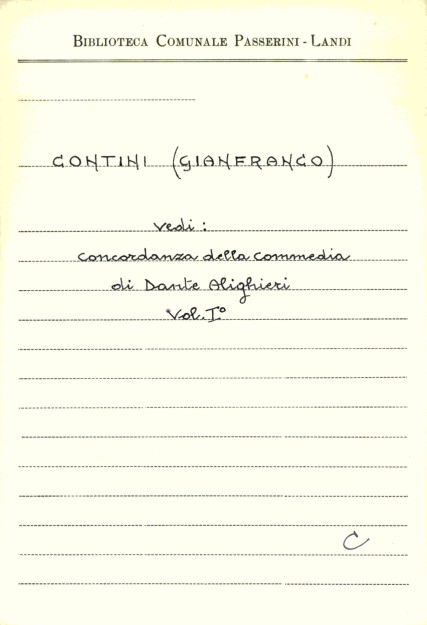 BIBLIOTECA COMUNALE PASSERINI - LANDI
CONTINI (GIANFRANCO)
Vedi :
concordanza della commedia
di Dante Alighieri
Vol. I°
C